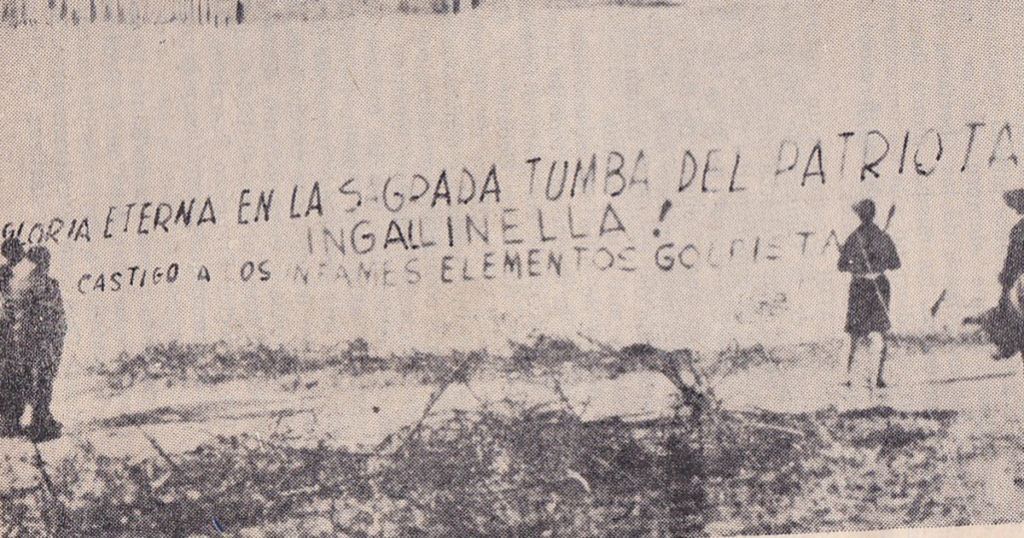 GLORIA ETERNA EN LA SAGRADA TUMBA DEL PATRIOTA
INGALLINELLA!
CASTIGO A LOS INFAMES ELEMENTOS GOLPISTA